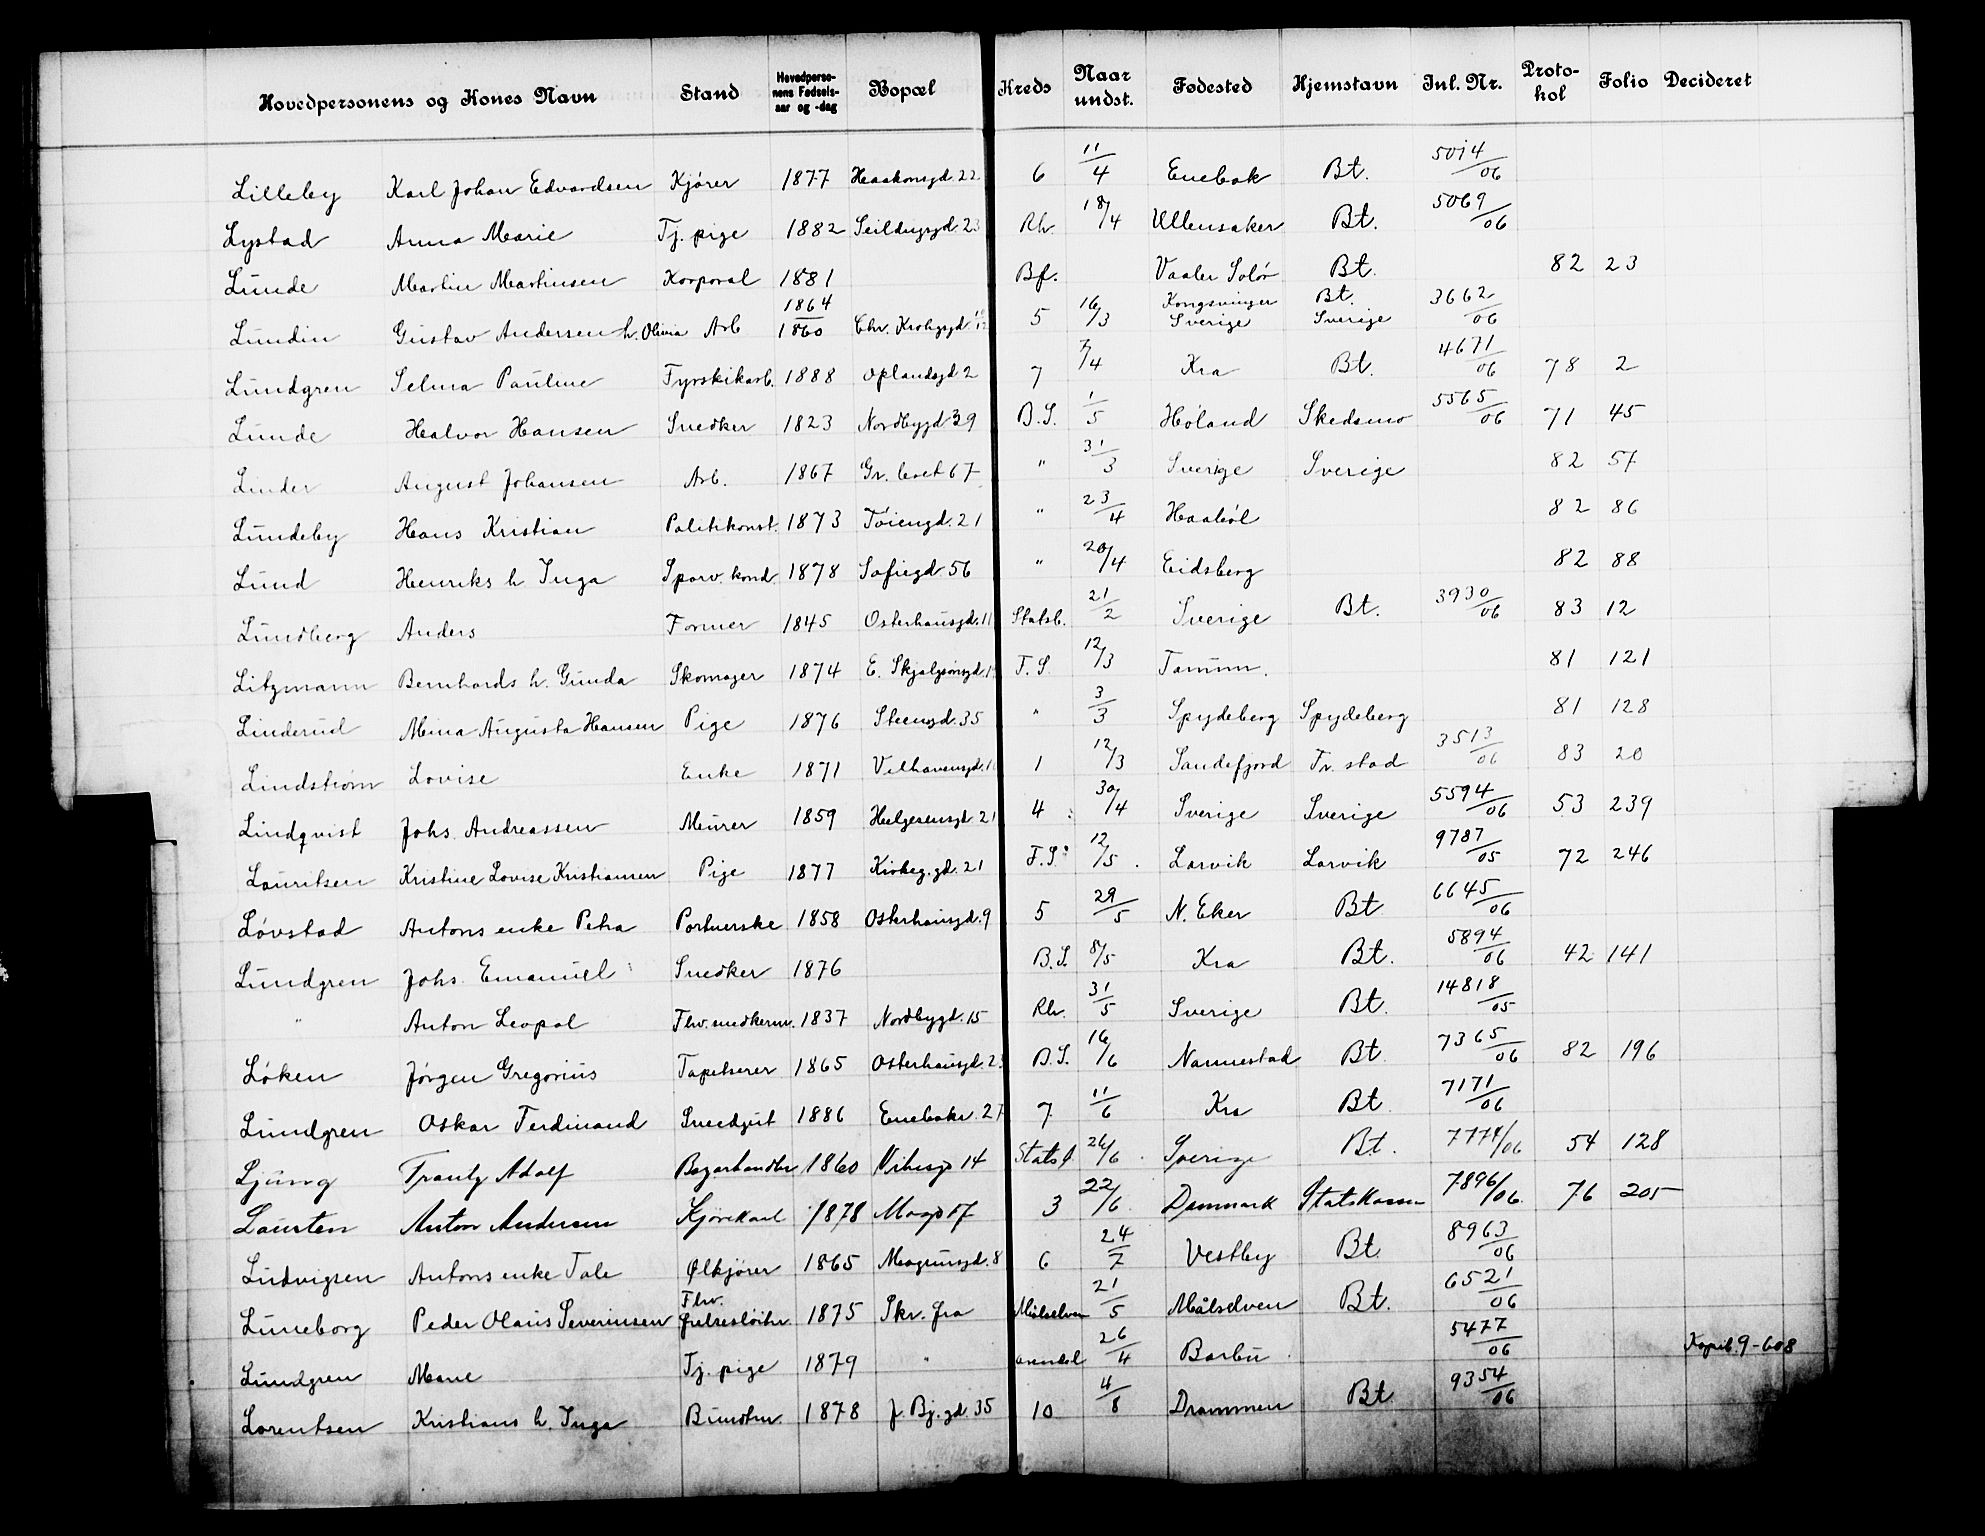 Hovedpersonens og Kones Navn Stand Hovedpersonens Fødselsaar og -dag Bopæl Kreds Naar undst. Fødested Hjemstavn Inl. Nr. Protokol Folio Decideret
Lilleby Karl Johan Edvardsen Kjører 1877 Haakonsgd. 22 6 11/4 Enebak Bt. 5014/06
Lystad Anna Marie Tj. pige 1882 Seildugsgd. 23 Rh. 18/4 Ullensaker Bt. 5069/06
Lunde Martin Martinsen Korporal 1881 Bf. Vaaler Solør Bt. 82 23
Lundin Gustav Andersen h. Olivia Arb 1864/1860 Chr. Krohgsgd. 5 16/3 Kongsvinger Sverige Bt. Sverige 3662/06
Lundgren Selma Pauline Fyrstikarb. 1888 Oplandsgd 2 7 7/4 Kra Bt. 4671/06 78 2
Lunde Halvor Hansen Snedker 1823 Nordbygd 39 B.S. 1/5 Høland Skedsmo 5565/06 71 45
Linder August Johansen Arb. 1867 Gr. leret 67 " 31/3 Sverige Sverige 82 57
Lundeby Hans Kristian Politikonst. 1873 Tøiengd. 21 " 23/4 Haabøl 82 86
Lund Henriks h Inga Sporv. kond. 1878 Sofiegd 56 " 20/4 Eidsberg 82 88
Lundberg Anders Former 1845 Osterhausgd. 11 Statsb. 21/2 Sverige Bt. 3930/06 83 12
Litzmann Bernhards h. Gunda Skomager 1874 E. Skjalgsønsgd. F.S. 12/3 Tanum. 81 121
Linderud Mina Augusta Hansen Pige 1876 Steensgd. 35 " 3/3 Spydeberg Spydeberg 81 128
Lindstrøm Lovise Enke 1871 Velhavensgd. 1 12/3 Sandefjord Fr. stad 3513/06 83 20
Lindqvist Johs. Andreassen Murer 1859 Helgesensgd 21 4 30/4 Sverige Sverige 5594/06 53 239
Lauritsen Kristine Lovise Kristiansen Pige 1877 Kirkeg. gd. 21 F.S. 12/5. Larvik Larvik 9787/05 72 246
Løvstad Antons enke Petra Portnerske 1858 Osterhausgd. 9 5 29/5 N. Eker Bt 6645/06
Lundgren Johs. Emanuel Snedker 1876 B.S. 8/5 Kra Bt. 5894/06 42 141
" Anton Leopol Fhv. snedkerm. 1837 Nordbygd. 15 Rh. 31/5 Sverige Bt. 14818/05
Løken Jørgen Gregorius Tapetserer 1865 Osterhausgd. 2 B.S. 16/6 Nannestad Bt 7365/06 82 196
Lundgren Oskar Ferdinand Snedgut 1886 Enebakv. 27 7 11/6 Kra Bt 7171/06
Ljung Frantz Adolf Bazarhandler 1860 Vibesgd 14 26/6. Sverige Bt. 7774/06 54 128
Laursten Anton Andersen Kjørekarl 1878 3 22/6. Danmark Statskassen 7896/06. 76 205
Ludvigsen Antons enke Tale Ølkjører 1865 Magnusgd. 8 6 24/7 Vestby Bt 8963/06
Luneborg Peder Olaus Severinsen Fhv. frelsesløitn. 1875 Skr. fra Målselven 21/5 Målselven Bt. 6521/06
Lundgren Marie Tj. pige 1879 " Arendal 26/4 Barbu 5477/06 Kopib. 9-608
Lorentsen Kristians h. Inga Buntm 1878 J. Bj. gd. 35 10 4/8 Drammen Bt. 9354/06